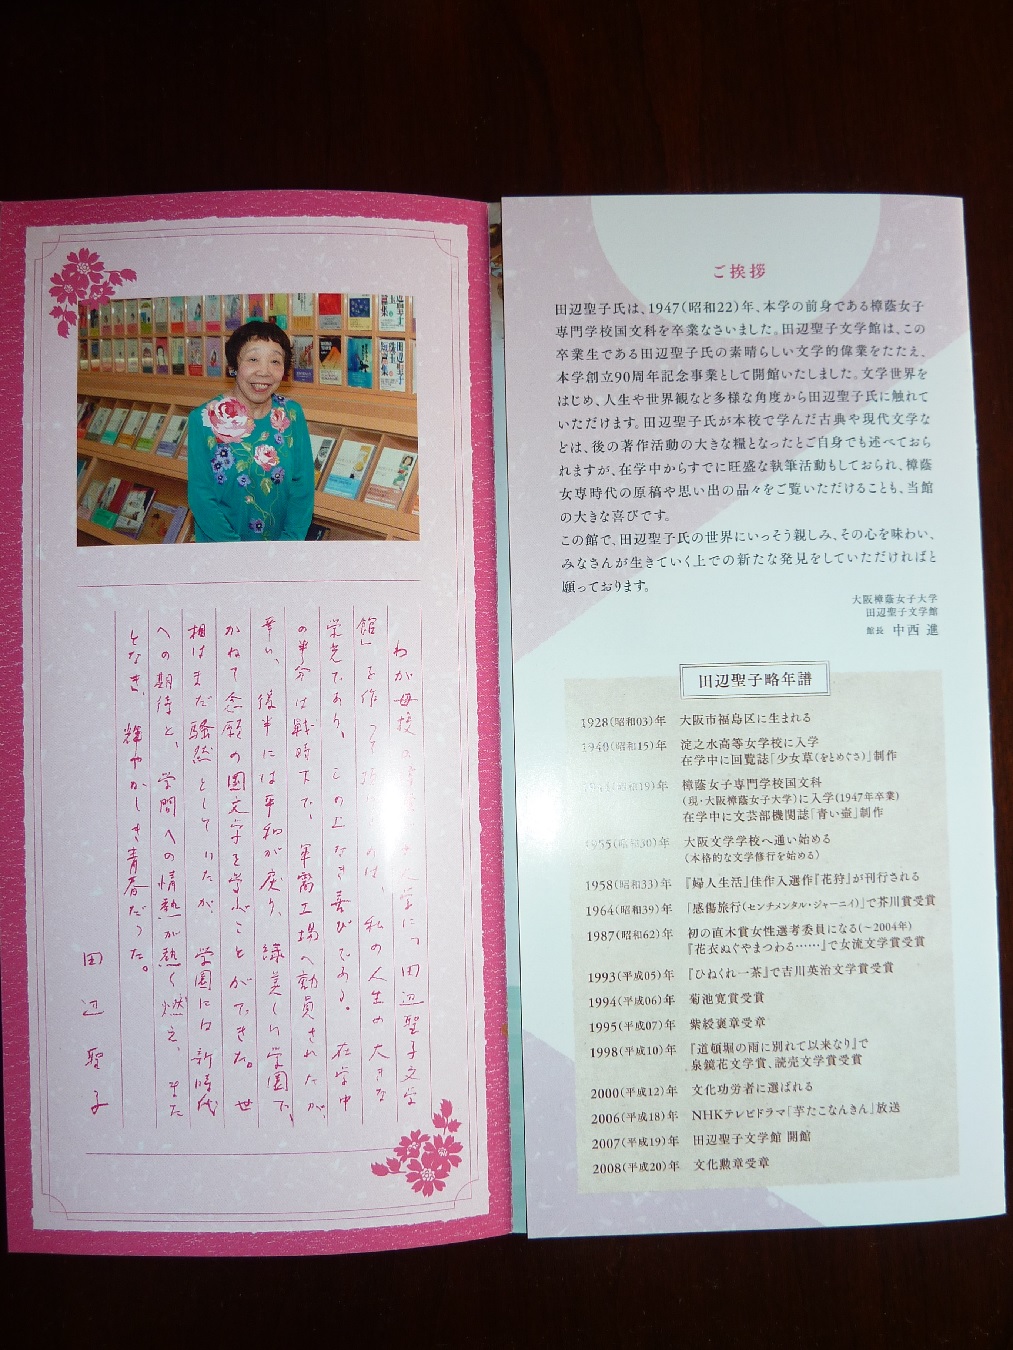 わが母校の
館」を作って
栄光であり、この上なき喜びである。在学中
の半分は戦時下で、軍需工場へ動員されたが、
幸い、後半には平和が戻り、緑美しい学園で、
かねて念願の国文学を学ぶことができた。世
相はまだ騒然としていたが、学園には新時代
への期待と、学問への情熱が熱く燃え、また
となき、輝やかしき青春だった。
田辺聖子
ご挨拶
田辺聖子氏は、1947(昭和22)年、本学の前身である樟蔭女子
専門学校国文科を卒業なさいました。田辺聖子文学館は、この
卒業生である田辺聖子氏の素晴らしい文学的偉業をたたえ、
本学創立90周年記念事業として開館いたしました。文学世界を
はじめ、人生や世界観など多様な角度から田辺聖子氏に触れて
いただけます。田辺聖子氏が本校で学んだ古典や現代文学な
どは、後の著作活動の大きな糧となったとご自身でも述べておら
れますが、在学中からすでに旺盛な執筆活動もしておられ、樟蔭
女専時代の原稿や思い出の品々をご覧いただけることも、当館
の大きな喜びです。
この館で、田辺聖子氏の世界にいっそう親しみ、その心を味わい、
みなさんが生きていく上での新たな発見をしていただければと
願っております。
大阪樟蔭女子大学
田辺聖子文学館
館長 中西 進
田辺聖子略年譜
1928(昭和03)年 大阪市福島区に生まれる
1940(昭和15)年 淀之水高等女学校に入学
在学中に回覧誌「少女草(をとめぐさ)」制作
1944(昭和19)年 樟蔭女子専門学校国文科
(現・大阪樟蔭女子大学)に入学(1947年卒業)
在学中に文芸部機関誌「青い壺」制作
1955(昭和30)年 大阪文学学校へ通い始める
(本格的な文学修行を始める)
1958(昭和33)年 『婦人生活』佳作入選作『花狩』が刊行される
1964(昭和39)年 「感傷旅行(センチメンタル・ジャーニイ)」で芥川賞受賞
1987(昭和62)年 初の直木賞女性選考委員になる(〜2004年)
『花衣ぬぐやまつわる……』で女流文学賞受賞
1993(平成05)年 『ひねくれ一茶』で吉川英治文学賞受賞
1994(平成06)年 菊池寛賞受賞
1995(平成07)年 紫綬褒章受章
1998(平成10)年 『道頓堀の雨に別れて以来なり』で
泉鏡花文学賞、読売文学賞受賞
2000(平成12)年 文化功労者に選ばれる
2006(平成18)年 NHKテレビドラマ「芋たこなんきん」放送
2007(平成19)年 田辺聖子文学館 開館
2008(平成20)年 文化勲章受章